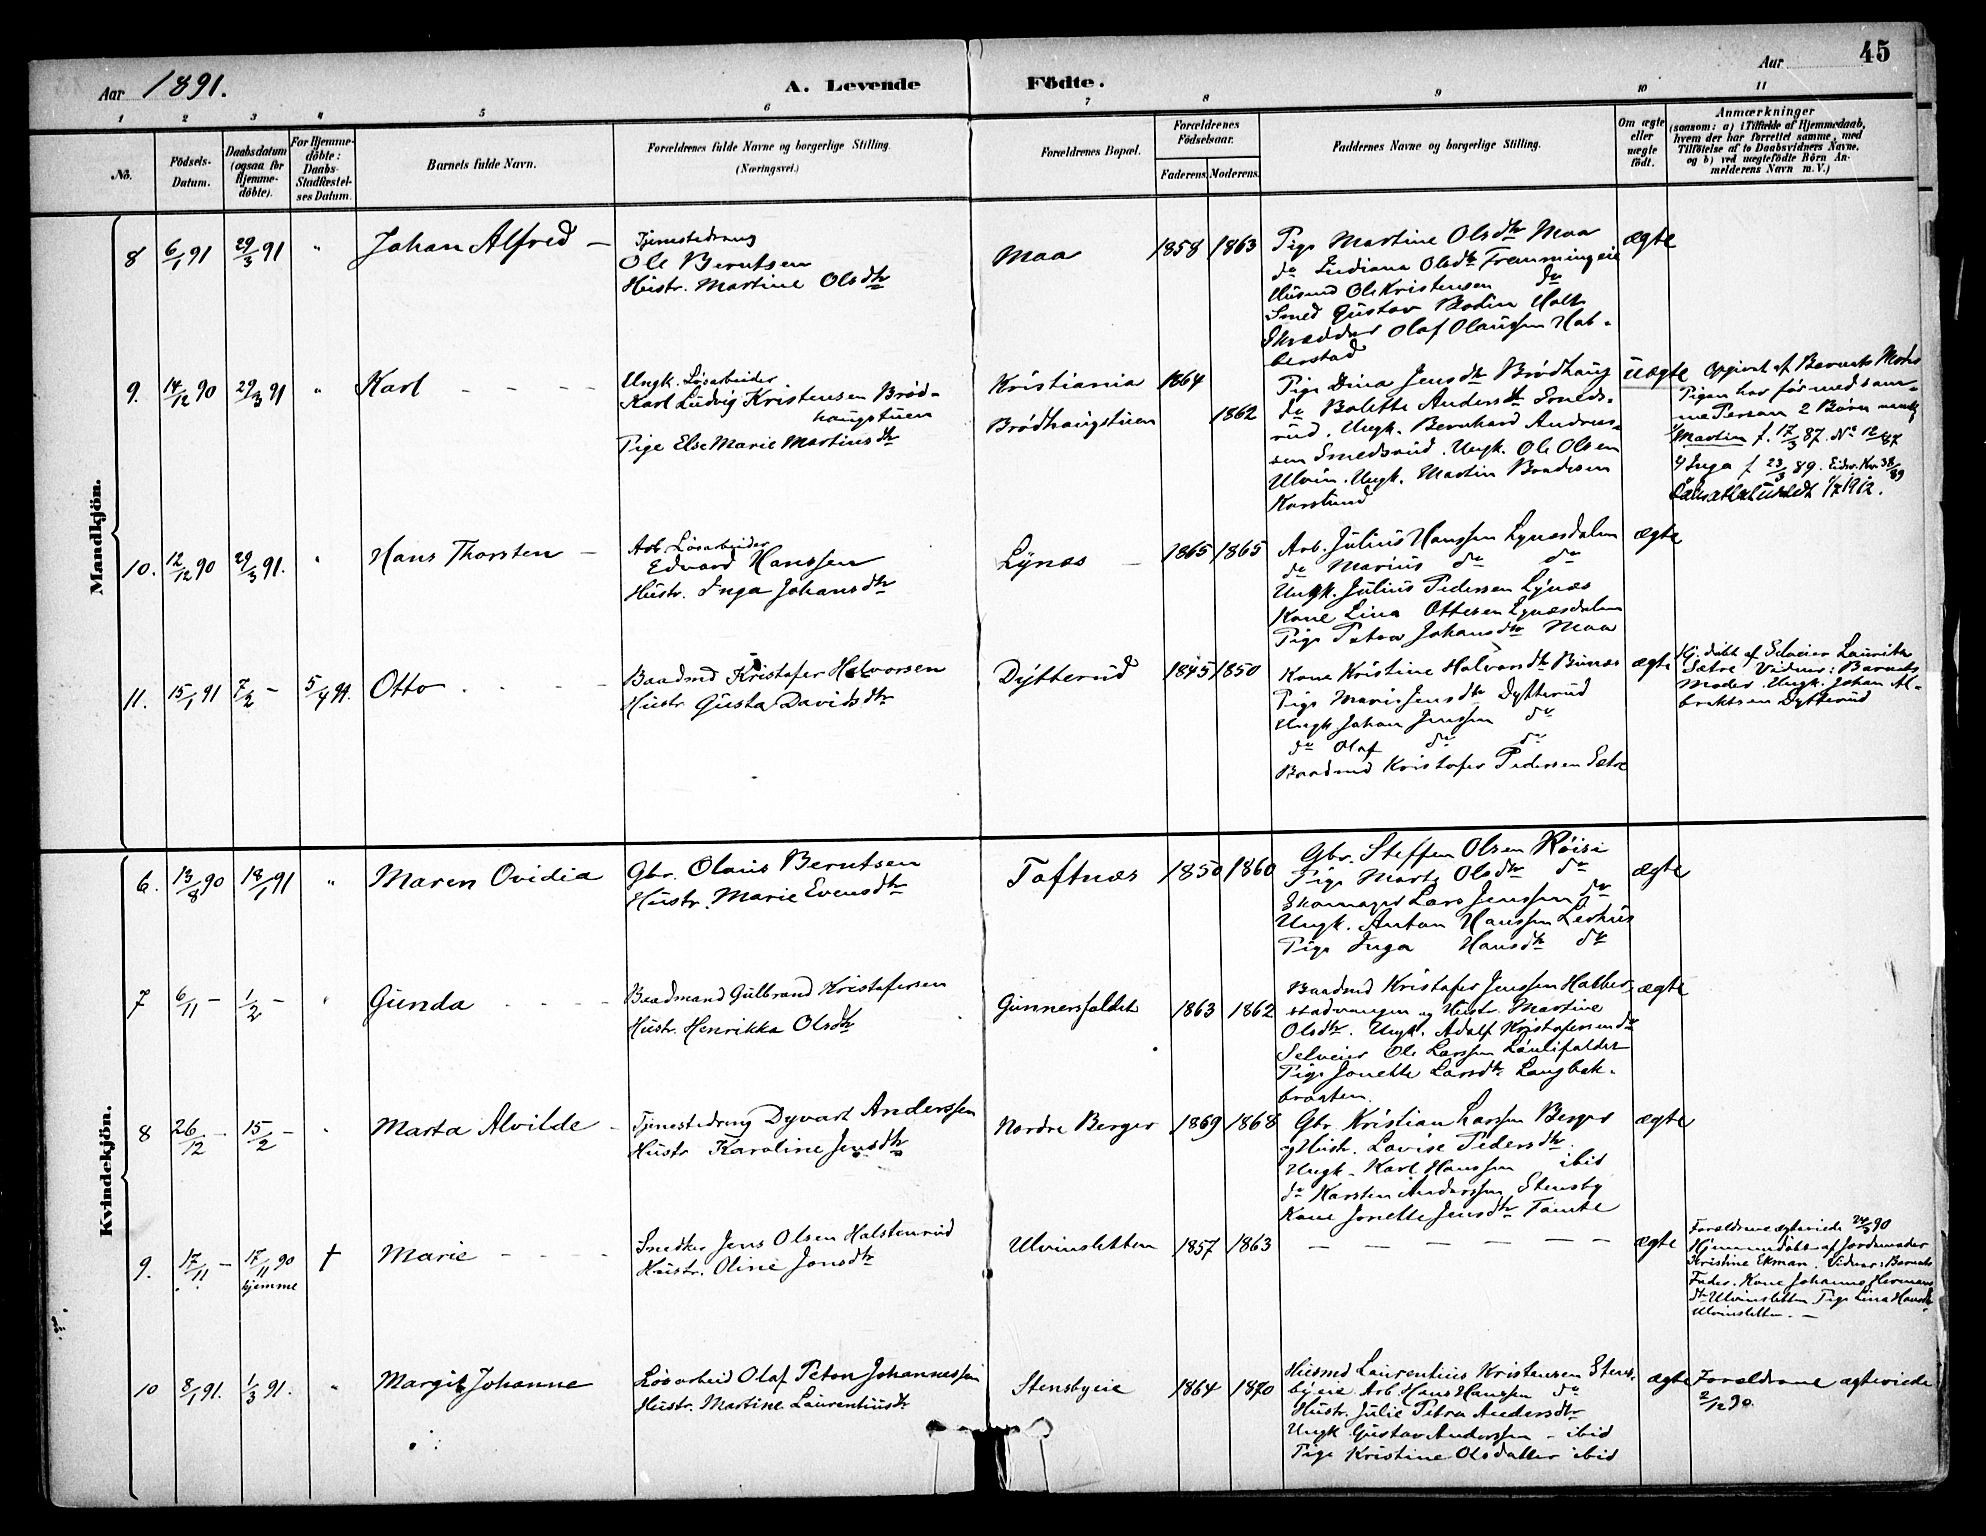 45
Aar 1891. A. Levende Födte. Aar
1 2 3 4 5 6 7 8 9 10 11
No.
Födsels-Datum.
Daabsdatum (ogsaa for Hjemme-döbte).
For Hjemme-döbte: Daabs-Stadfæstel-ses Datum.
Barnets fulde Navn.
Forældrenes fulde Navne og borgerlige Stilling. (Næringsvei.)
Forældrenes Bopæl.
Forældrenes Födselsaar.
Faderens. Moderens.
Faddernes Navne og borgerlige Stilling.
Om ægte eller uægte födt.
Anmærkninger
(saasom: a) i Tilfælde af Hjemmedaab,
hvem der har forrettet samme, med
Tilföielse af to Daabsvidners Navne,
og b) ved uægtefödte Börn An-
melderens Navn m. V.)
Mandkjön.
8 6/1 91 29/3 91 " Johan Alfred —
Tjenestedreng
Ole Berntsen
Hustr. Martine Olsdtr
Maa 1858 1863
Pige Martine Olsdtr Maa
do Indiana Olsdtr Fremmingeie
Husmd Ole Kristensen do
Smed Gustav Bodin Holt
Skrædder Olaf Olaussen Hab-
berstad
ægte
9. 14/12 90 29/3 91 " Karl - - - -
Ungk. Løsarbeider
Karl Ludvig Kristensen Brød-
haugstuen
Pige Else Marie Martinsdtr
Kristiania 1864
Brødhaugstuen 1862
Pige Dina Jensdtr Brødhaug
do Bolette Andersdtr Smeds-
rud. Ungk. Bernhard Andreas-
sen Smedsrud. Ungk. Ole Olsen
Ulvin. Ungk. Martin Bredesen
Korslund
uægte
Opgivet af Barnets Moder
Pigen har før med sam-
me Person 2 Børn
Martin f. 17/3 87. No 12/87
Inga f 23/3 89. Eidsv. Kv. 38/89
1/7 1912.
10. 12/12 90 29/3 91. " Hans Thorsten —
Arb. Løsarbeider
Edvard Hanssen
Hustr. Inga Johansdtr
Lynæs — 1865 1865
Arb. Julius Hanssen Lynæsdalen
do Marius do do
Ungk. Julius Pedersen Lynæs
Kone Lina Ottesen Lynæsdalen
Pige Petra Johansdtr Maa
ægte
11. 15/1 91 7/2 - 5/4 91. Otto . - - -
Baadmd Kristofer Halvorsen
Hustr Gusta Davidsdtr
Dytterud 1845 1850
Kone Kristine Halvorsdtr Bunæs
Pige Marie Jensdtr Dytterud
Ungk Johan Jenssen do
do Olaf do do
Baadmd Kristofer Pedersen Sætre
ægte
Hj. døbt af Selveier Lauritz
Sætre Vidner: Barnets
Moder. Ungk. Johan Al-
brektsen Dytterud
Kvindekjön.
6. 13/8 90 18/1 91 " Maren Ovidia
Gbr. Olaus Berntsen
Hustr. Marie Evensdtr
Toftnæs 1850 1860
Gbr. Steffen Olsen Røise
Pige Marte Olsdtr do
Skomager Lars Jenssen do
Ungk. Anton Hanssen Leehus
Pige Inga Hansdtr do
ægte
7 6/11 - 1/2 - " Gunda - - - -
Baadmand Gulbrand Kristofersen
Hustr. Henrikka Olsdtr
Gunnersfaldet 1863 1862
Baadmd Kristofer Jenssen Habber-
stadvangen og Hustr. Martine
Olsdtr. Ungk. Adolf Kristofersen do
Selveier Ole Larssen Laulifaldet
Pige Jonette Larsdtr Langbak-
braaten.
ægte
8 26/12 - 15/2 - " Marta Alvilde -
Tjenestedreng Dyvart Anderssen
Hustr Karoline Jensdtr
Nordre Berger 1869 1868
Gbr. Kristian Larssen Berger
og Hustr. Lovise Pedersdtr.
Ungk. Karl Hanssen ibid
do Karsten Anderssen Stensby
Kone Jonette Jensdtr Tømte
ægte
9. 17/11 - 17/11 90 hjemme † Marie - - - -
Snedker Jens Olsen Halstenrud
Hustr. Oline Jonsdtr
Ulvinsletten 1857 1863
— — — — — —
ægte
Forældrene ægteviede 24/3 90
Hjemmedøbt af Jordemoder
Kristine Ekman. Vidner: Barnets
Fader. Kone Johanne Hermans-
dtr Ulvinsletten Pige Lina Hansdtr
Ulvinsletten. —
10 8/1 91. 1/3 91. " Margit Johanne
Løsarbeid Olaf Peton Johannessen
Hustr. Martine Laurentiusdtr
Stensbyeie 1864 1870
Husmd Laurentius Kristensen Stens-
byeie Arb. Hans Hanssen do
Hustr. Julie Petra Andersdtr
Ungk Gustav Anderssen - ibid
Pige Kristine Olsdatter ibid
ægte
Forældrene ægteviede
2/12 90.